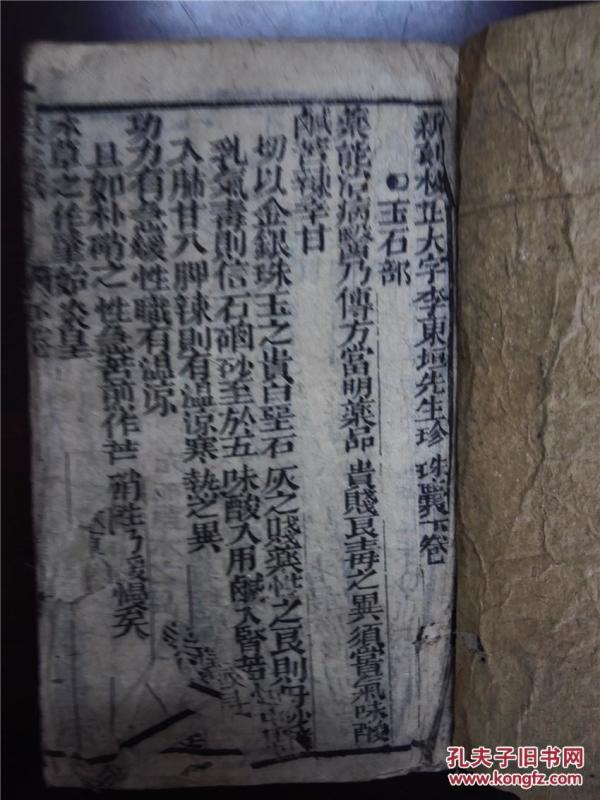 新刻校正大字李東垣先生珍珠囊下卷
玉石部
藥能治病醫乃傳方當明藥品貴賤良毒之異須當氣味酸
鹹苦辣辛甘
切以金銀珠玉之貴白堊石灰之賤藥性之良則丹砂
乳氣毒則信石硇砂至於五味酸入用鹹入腎苦
入肺甘入脾辣則有溫涼寒熱之異
功力有急緩性職有溫涼
且如朴硝之性急若煎作芒硝性乃緩矣
本草之作肇始炎皇
孔夫子旧书网
www.kongfz.com